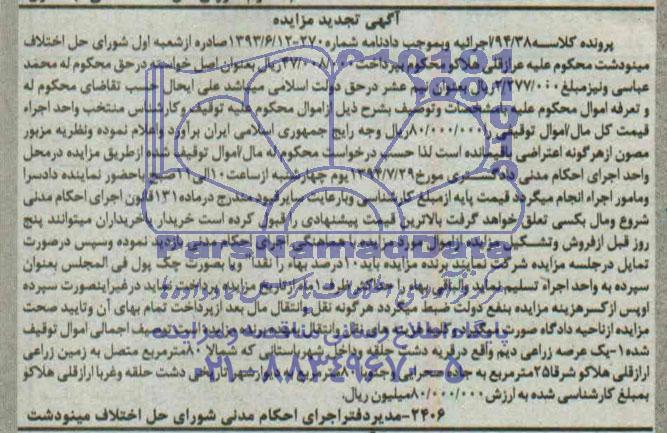 آگهی تجدید مزایده
پرونده کلاسه ۹۴/۳۸/اجرائیه وبموجب دادنامه شماره ۲۷۰-۱۳۹۳/۶/۱۲ صادره ازشعبه اول شورای حل اختلاف
مینودشت محکوم علیه عرازقلی هلاکو محکوم بپرداخت ریال بعنوان اصل خواسته درحق محکوم له محمد
عباسی ونیزمبلغ ریال بعنوان نیم عشر درحق دولت اسلامی میباشد علی ایحال حسب تقاضای محکوم له
و تعرفه اموال محکوم علیه بامشخصات وتوصیف بشرح ذیل ازاموال محکوم علیه توقیف وکارشناس منتخب واحد اجراء
قیمت کل مال/اموال توقیفی را ۸۰/۰۰۰/۰۰۰ریال وجه رایج جمهوری اسلامی ایران برآورد واعلام نموده ونظریه مزبور
مصون ازهرگونه اعتراضی باقیمانده است لذا حسب درخواست محکوم له مال/اموال توقیف شده ازطریق مزایده درمحل
واحد اجرای احکام مدنی دادگستری مورخ ۱۳۹۴/۷/۲۹ یوم چهارشنبه ازساعت ۱۰الی ۱۱صبح باحضور نماینده دادسرا
ومامور اجراء انجام میگردد قیمت پایه ازمبلغ کارشناسی وبارعایت سایرقیود مندرج درماده ۱۳۱قانون اجرای احکام مدنی
شروع ومال بکسی تعلق خواهد گرفت بالاترین قیمت پیشنهادی را قبول کرده است خریدار/خریداران میتوانند پنج
روز قبل ازفروش وتشکیل مزایده ازاموال مورد مزایده با هماهنگی اجرای احکام مدنی بازدید نموده وسپس درصورت
تمایل درجلسه مزایده شرکت نمایند برنده مزایده باید ۱۰درصد بهاء را نقدا" ویا بصورت چک پول فی المجلس بعنوان
سپرده به واحد اجراء تسلیم نماید والباقی بهاء را حداکثر ظرف ۱ماه ازتاریخ مزایده پرداخت نماید درغیراینصورت سپرده
اوپس ازکسرهزینه مزایده بنفع دولت ضبط میگردد هرگونه نقل وانتقال مال بعد ازپرداخت تمام بهای آن وتایید صحت
مزایده ازناحیه دادگاه صورت میگیرد وکلیه هزینه های نقل وانتقال بعهده برنده مزایده است توصیف اجمالی اموال توقیف
شده ۱-یک عرصه زراعی دیم واقع درقریه دشت حلقه داخل شهرباستانی که شمالا ۸۰مترمربع متصل به زمین زراعی
ارازقلی هلاکو شرقا۲۵مترمربع به جاده صحرایی وجنوبا ۸۰مترمربع به دیوارشهر تاریخی دشت حلقه وغربا ارازقلی هلاکو
بمبلغ کارشناسی شده به ارزش ۸۰/۰۰۰/۰۰۰میلیون ریال.
۲۴۰۶-مدیردفتراجرای احکام مدنی شورای حل اختلاف مینودشت
ParsNamadData
پایگاه اطلاع رسانی مناقصه ومزایده
۰۲۱-۸۸۳۴۹۶۷۰-۵